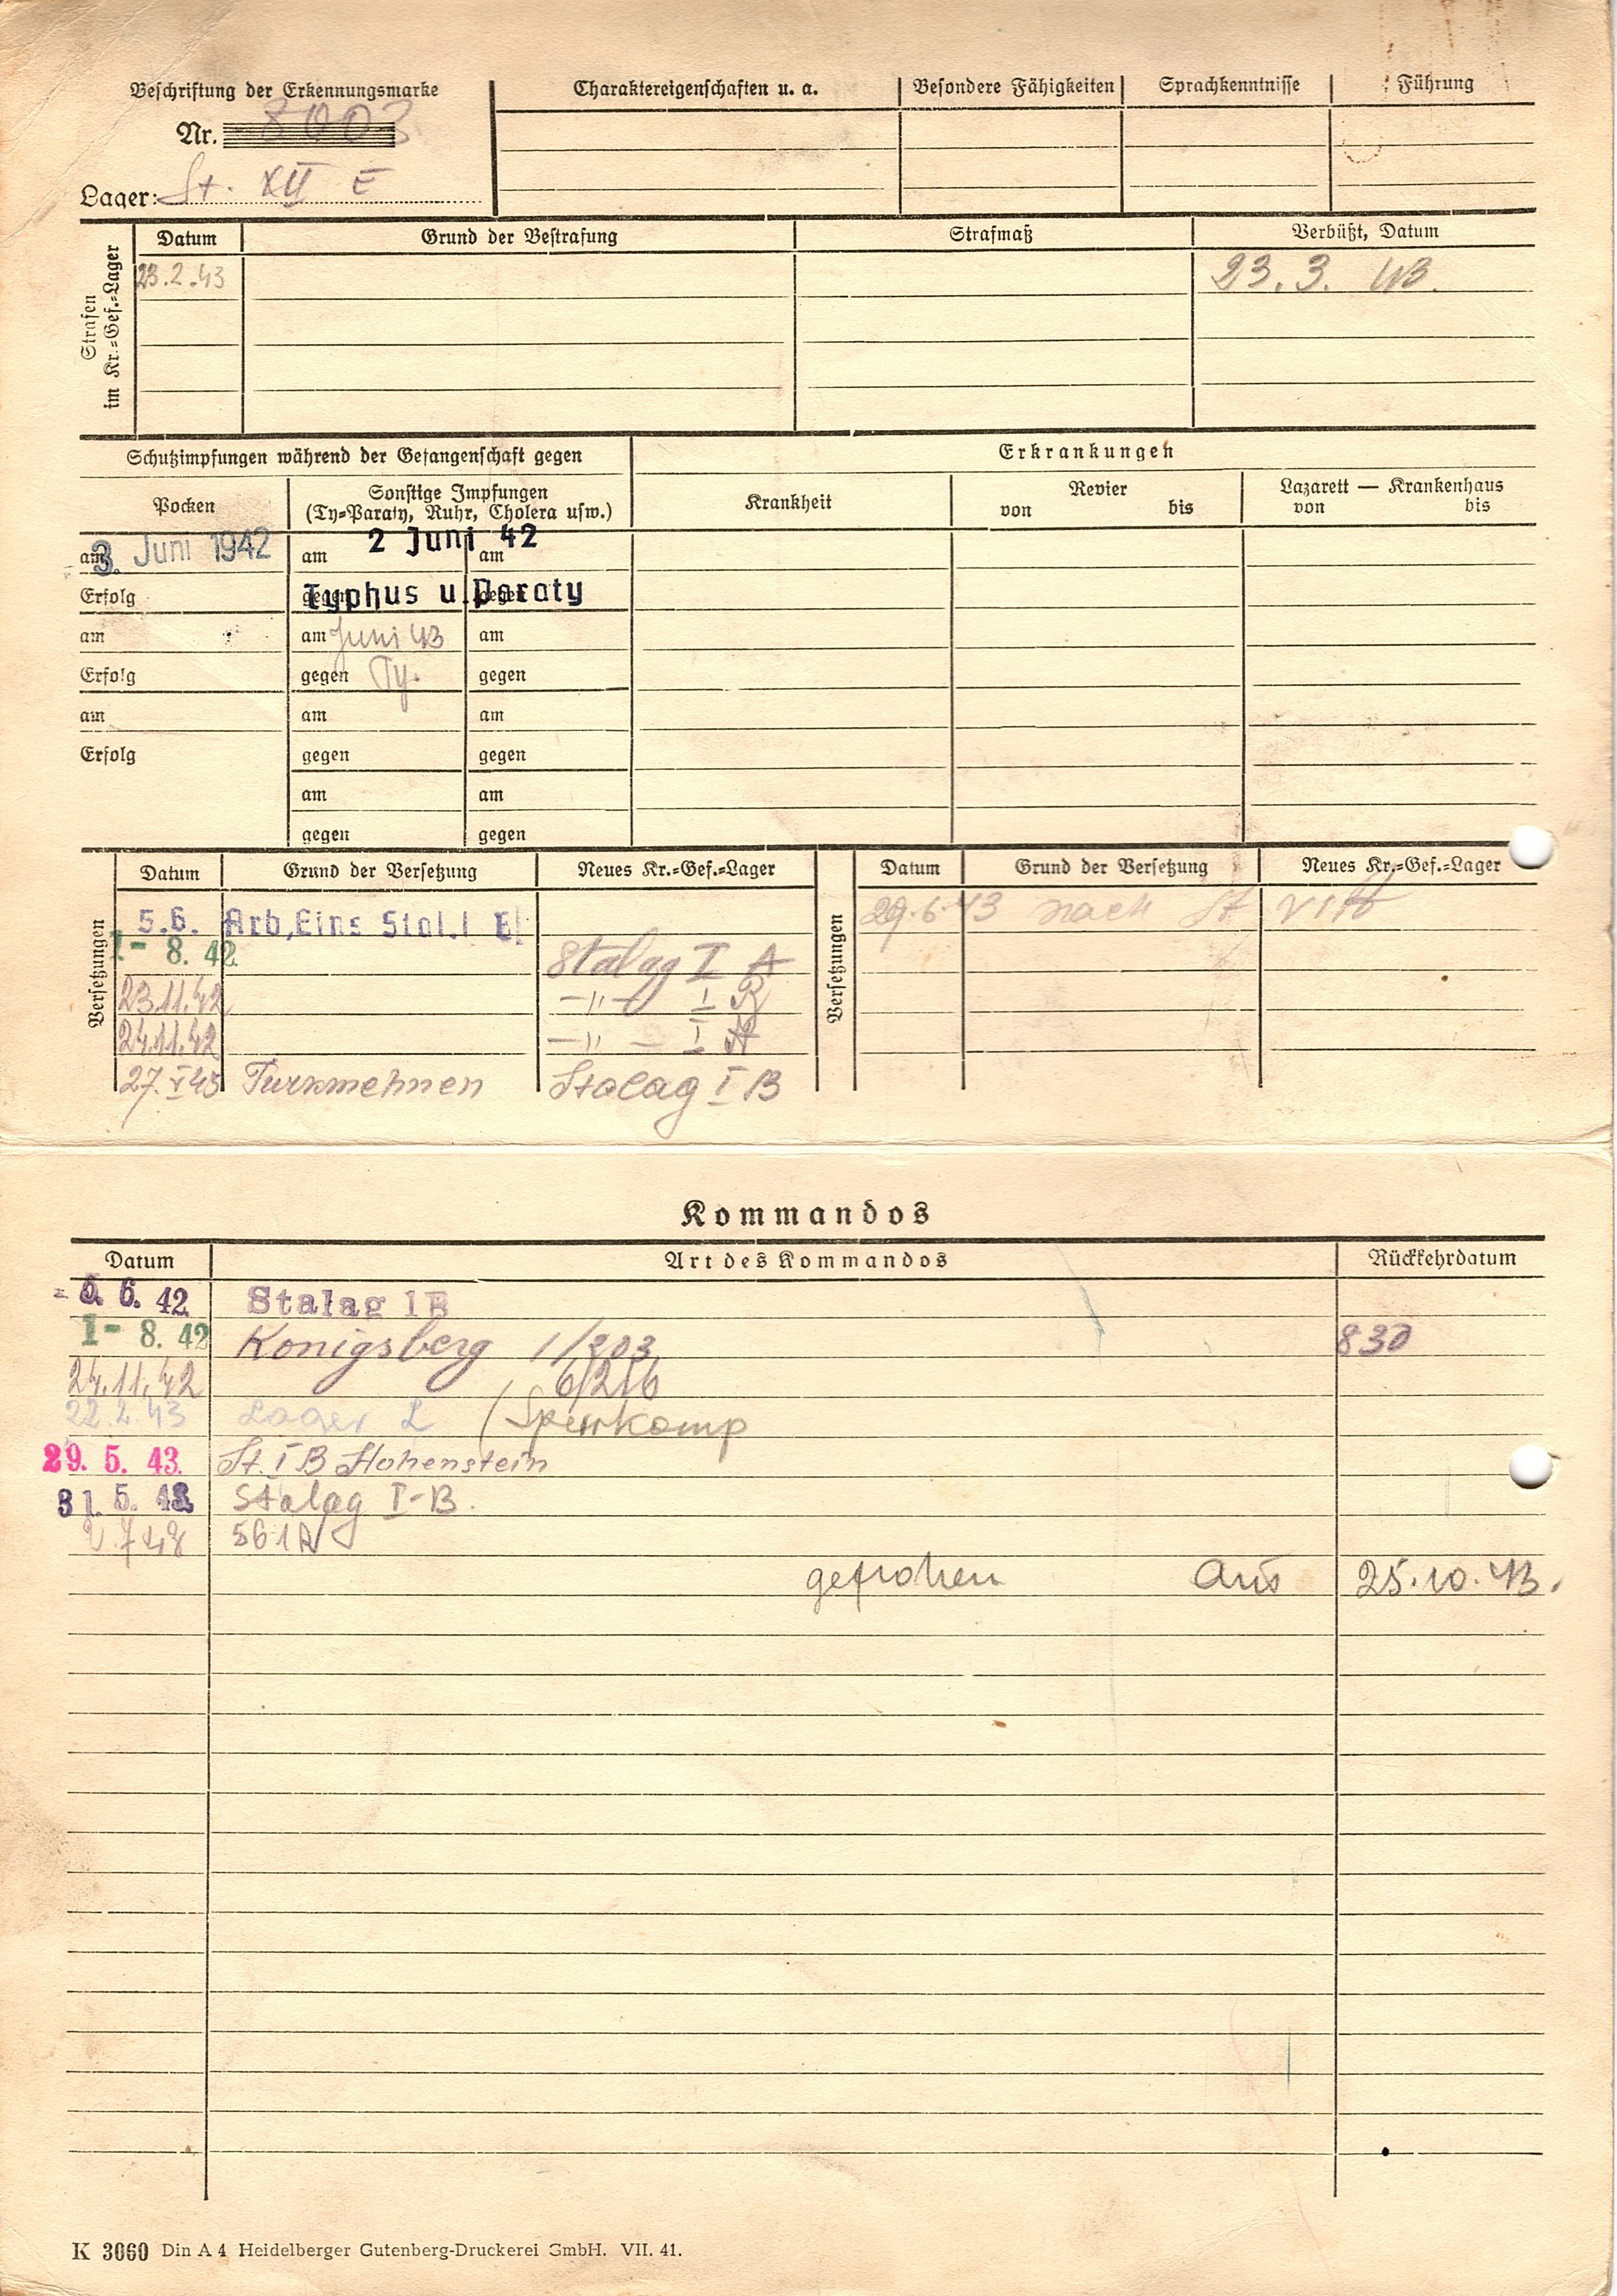 Beschriftung der Erkennungsmarke
Nr. 8003
Lager: St. XII E
Charaktereigenschaften u. a.
Besondere Fähigkeiten
Sprachkenntnisse
Führung
Strafen im Kr.=Gef.=Lager
Datum Grund der Bestrafung Strafmaß Verbüßt, Datum
23.2.43 23.3.43.
Schutzimpfungen während der Gefangenschaft gegen
Erkrankungen
Pocken
Sonstige Impfungen
(Ty=Paraty, Ruhr, Cholera usw.)
Krankheit
Revier
von bis
Lazarett — Krankenhaus
von bis
am 3. Juni 1942 am 2 Juni 42 am
Erfolg gegen Typhus u. Paraty gegen
am am Juni 43 am
Erfolg gegen Ty. gegen
am am am
Erfolg gegen gegen
am am
gegen gegen
Versetzungen
Datum Grund der Versetzung Neues Kr.=Gef.=Lager
5.6. Arb, Eins Stal. I B
1- 8. 42 Stalag I A
23.11.42 -"- I B
24.11.42 -"- I A
27.V 43 Stalag I B
Versetzungen
Datum Grund der Versetzung Neues Kr.=Gef.=Lager
29.6.43 nach St
Kommandos
Datum Art des Kommandos Rückkehrdatum
6. 42 Stalag 1B
1- 8. 42 Konigsberg 1/203 830
24.11.42 6/216
22.2.43 Lager L (Sperrkomp
29. 5. 43. St. I B Hohenstein
31. 5. 43 Stalag I-B.
561
geflohen aus 25.10.43.
K 3060 Din A 4 Heidelberger Gutenberg-Druckerei GmbH. VII. 41.